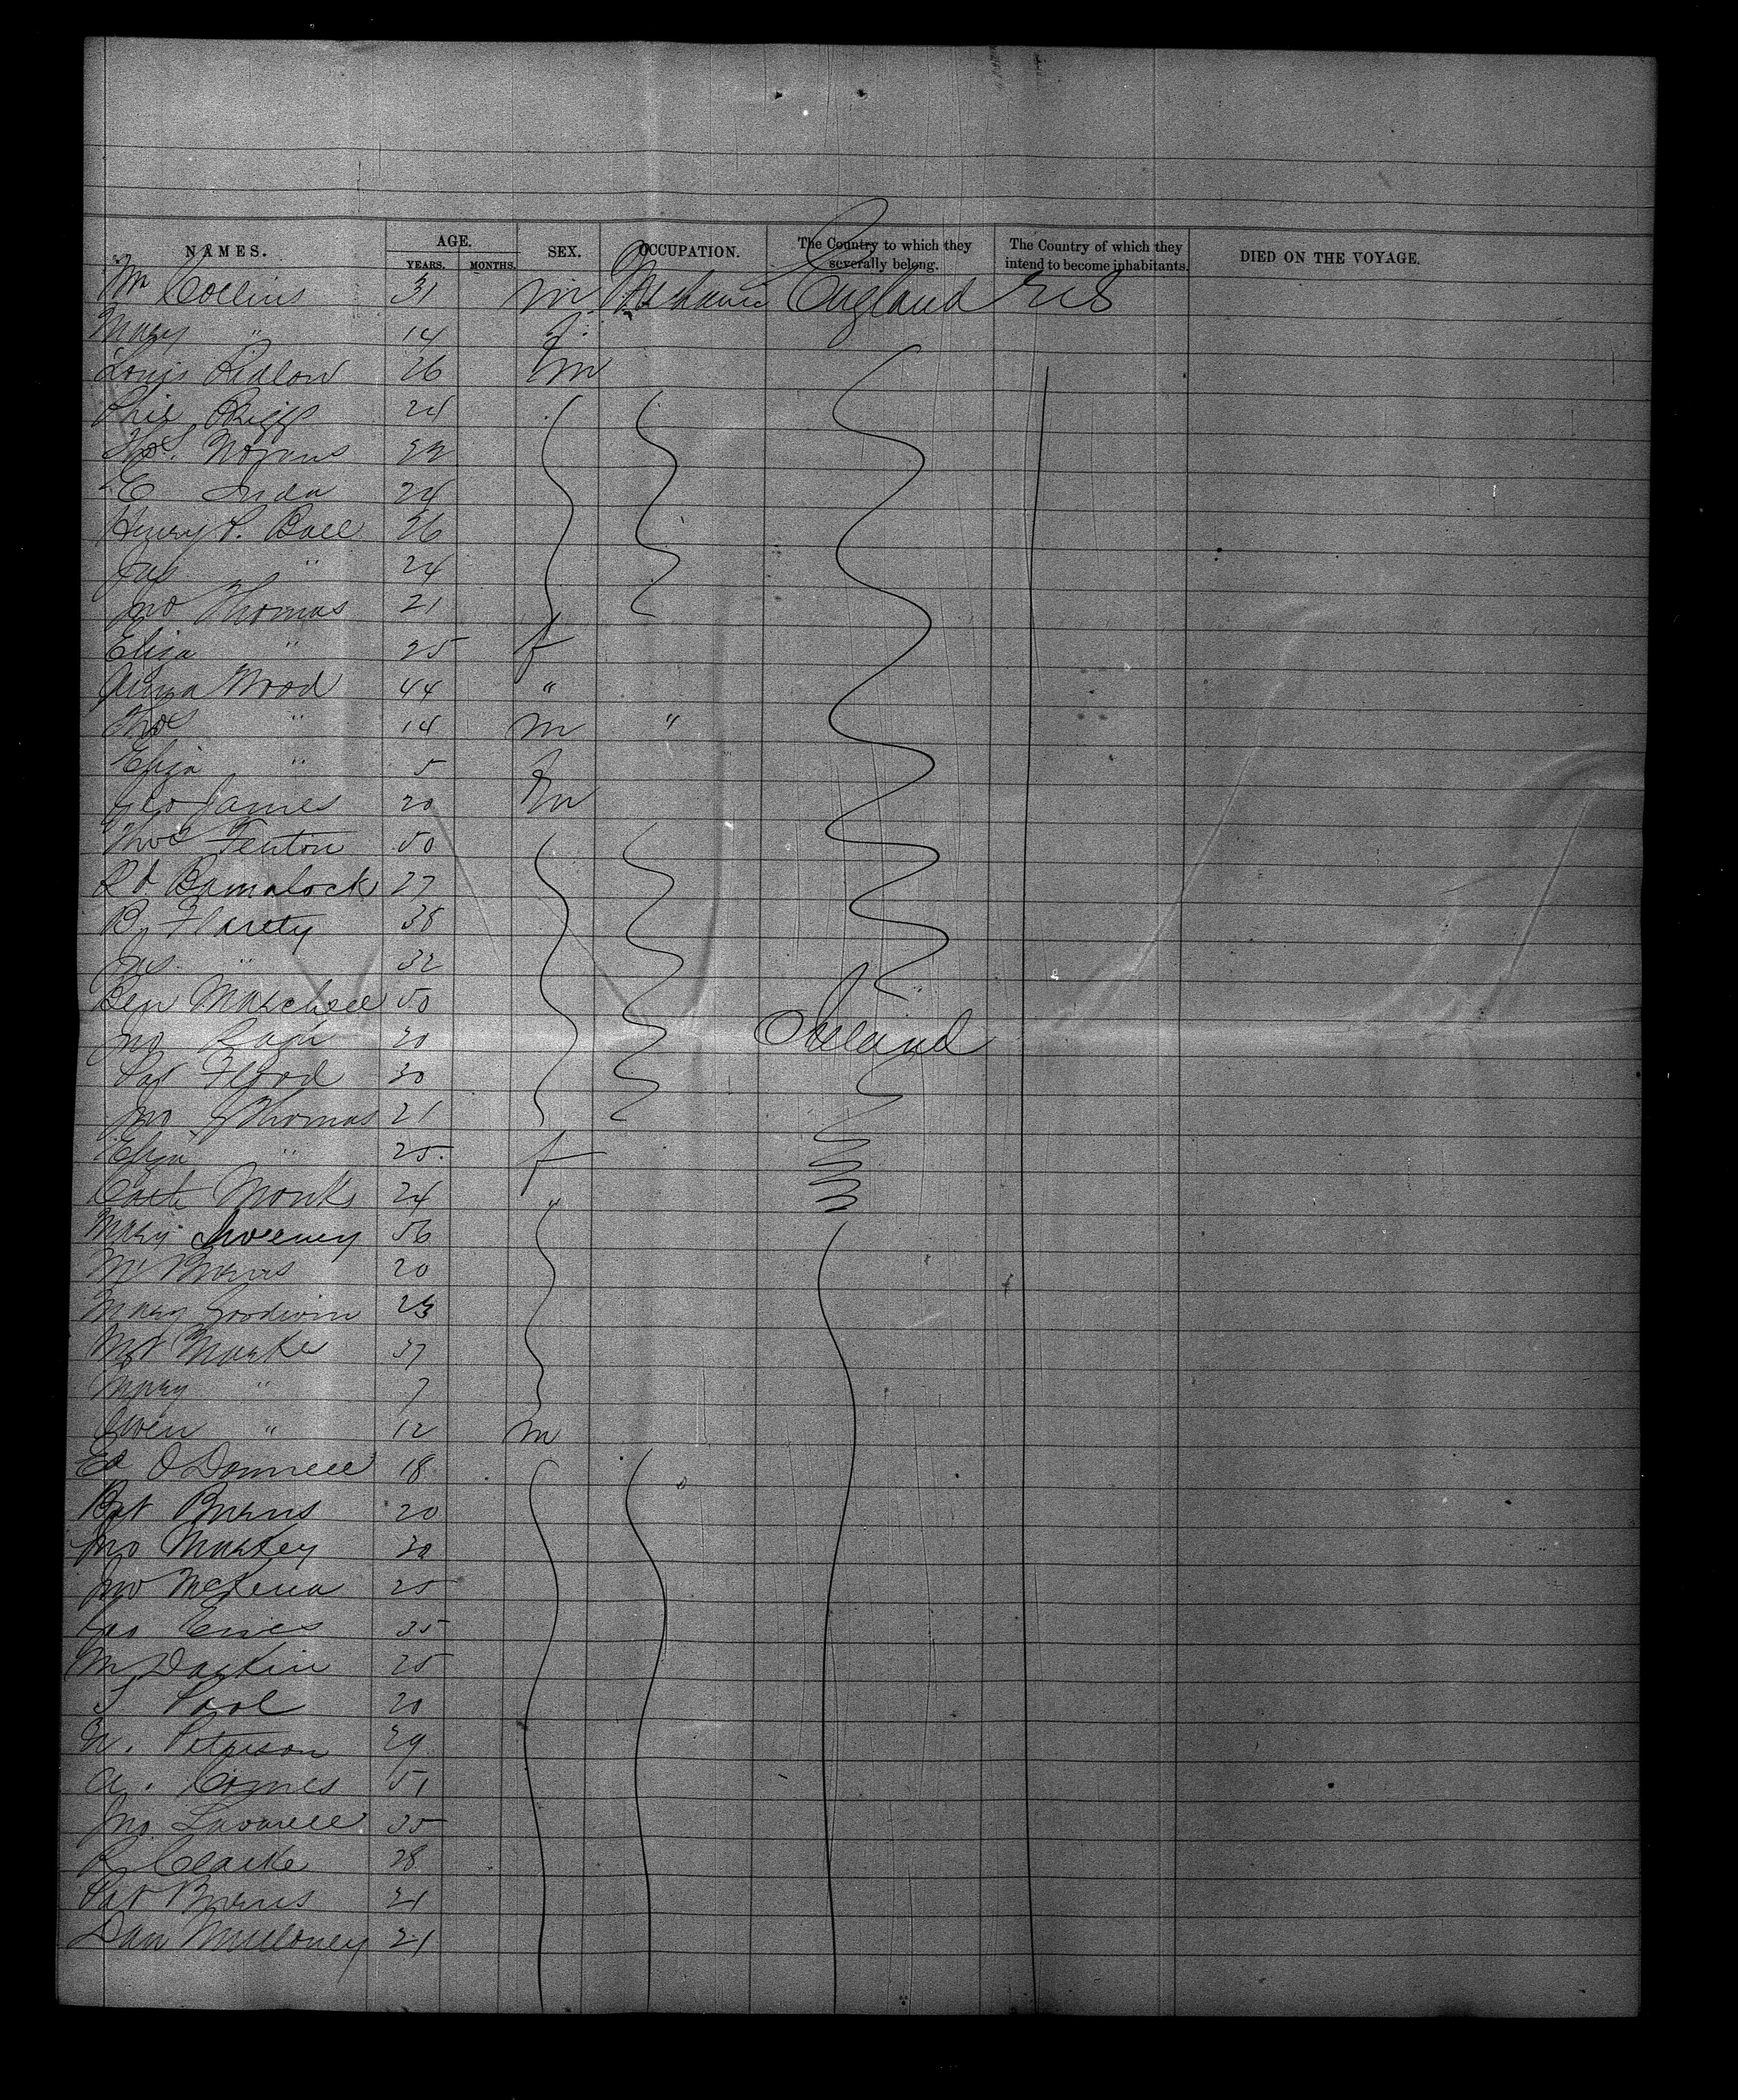 NAMES. AGE. SEX. OCCUPATION. The Country to which they severally belong. The Country of which they intend to become inhabitants. DIED ON THE VOYAGE.
YEARS. MONTHS.
Wm Collins 31 m Mechanic England U S
Mary " 14 f
Louis 26 m
Phil Briggs 24
Thos. 22
E 24
Henry P. Ball 26
Jas " 24
Jno Thomas 21
Eliza " 25 f
Anna Wood 44 "
Thos " 14 m "
Eliza " 5 f
Geo James 20 m
Thos Fenton 50
Rd. 27
B. Flarety 38
Jas " 32
Ben Marshall 50
Jno 20 Ireland
Pat Flood 30
Jno Thomas 21
Eliza " 25. f
Cath Monks 24 "
Mary Sweeney 56
M Burns 20
Mary Goodwin 23
Mgt 37
Mary " 7
Owen " 12 m
Ed O Donnell 18
Pat Burns 20
Jno Markey 30
Jno McKena 25
Jas 35
M 25
S Pool 20
N. Peterson 29
A. 51
Jno 35
R Clarke 28
Pat Burns 21
Dan Muloney 21